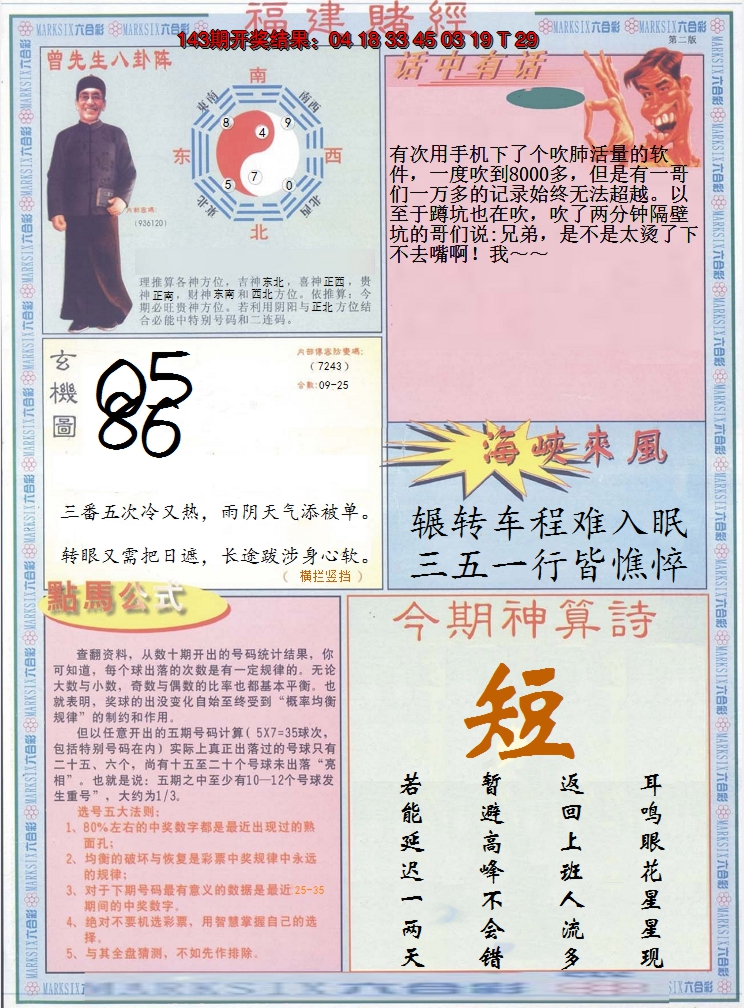 福建賭經
143期开奖结果：04 18 33 45 03 19 T 29
MARKSIX六合彩
第二版
曾先生八卦阵
南
东南
西南
8
9
4
东
西
5
7
0
东北
西北
北
内部密碼:
(936120)
理推算各神方位，吉神东北，喜神正西，贵
神正南，财神东南和西北方位。依推算：今
期必旺贵神方位。若利用阴阳与正北方位结
合必能中特别号码和二连码。
话中有话
有次用手机下了个吹肺活量的软
件，一度吹到8000多，但是有一哥
们一万多的记录始终无法超越。以
至于蹲坑也在吹，吹了两分钟隔壁
坑的哥们说:兄弟，是不是太烫了下
不去嘴啊！我～～
玄機圖
05
86
内部傳密防變碼:
(7243)
合數:09-25
三番五次冷又热，雨阴天气添被单。
转眼又需把日遮，长途跋涉身心软。
（横拦竖挡）
海峽來風
辗转车程难入眠
三五一行皆憔悴
點馬公式
查翻资料，从数十期开出的号码统计结果，你
可知道，每个球出落的次数是有一定规律的。无论
大数与小数，奇数与偶数的比率也都基本平衡。也
就表明，奖球的出没变化自始至终受到“概率均衡
规律”的制约和作用。
但以任意开出的五期号码计算( 5X7=35球次，
包括特别号码在内) 实际上真正出落过的号球只有
二十五、六个，尚有十五至二十个号球未出落“亮
相”。也就是说：五期之中至少有10—12个号球发
生重号”，大约为1/3。
选号五大法则：
1、80%左右的中奖数字都是最近出现过的熟
面孔；
2、均衡的破坏与恢复是彩票中奖规律中永远
的规律；
3、对于下期号码最有意义的数据是最近25-35
期间的中奖数字。
4、绝对不要机选彩票，用智慧掌握自己的选
择。
5、与其全盘猜测，不如先作排除。
今期神算詩
短
耳鸣眼花星星现
返回上班人流多
暂避高峰不会错
若能延迟一两天